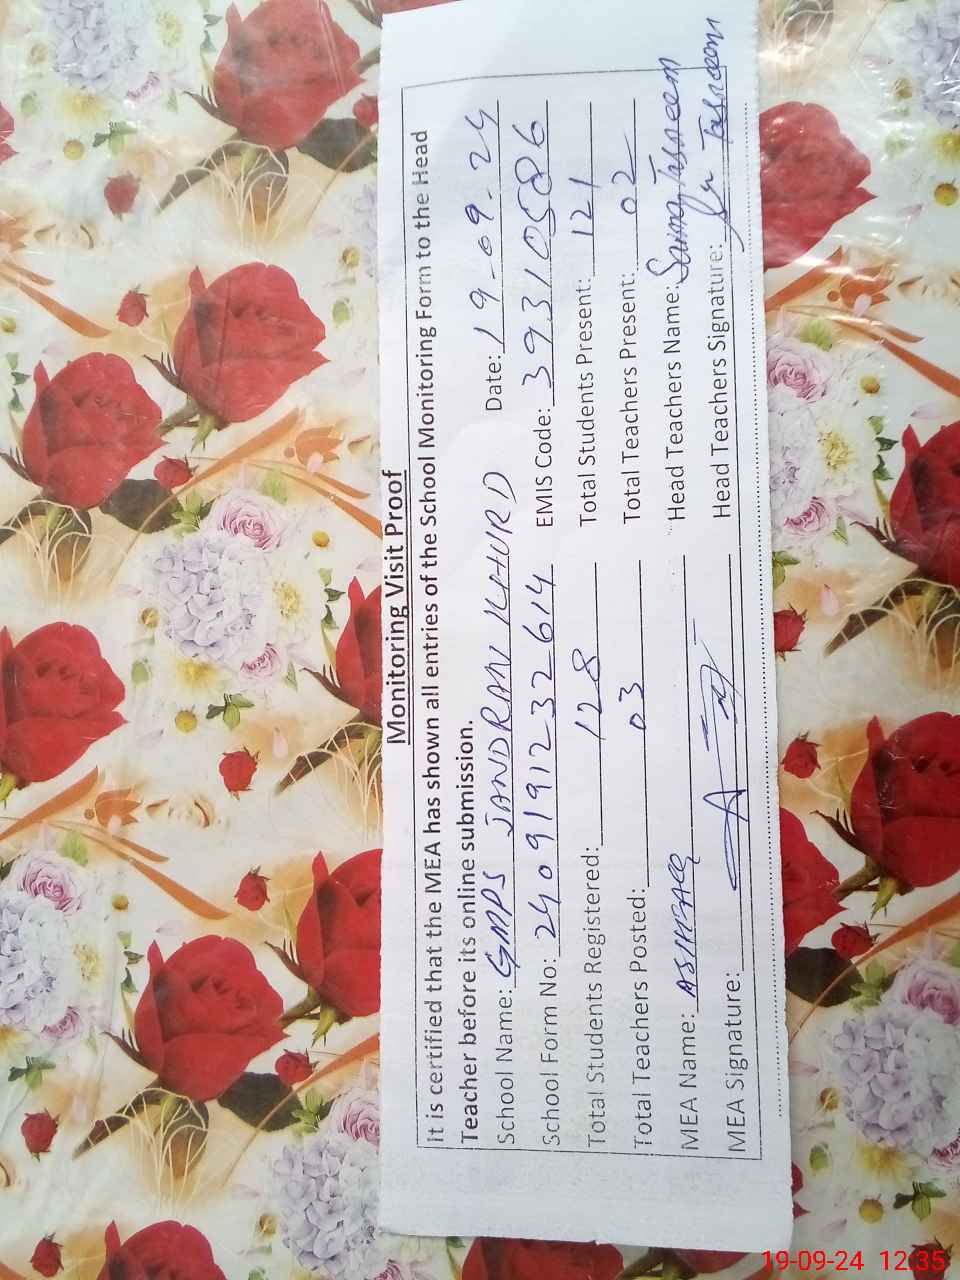 Monitoring Visit Proof
It is certified that the MEA has shown all entries of the School Monitoring Form to the Head
Teacher before its online submission.
School Name: GMPS JANDRAN KHURD Date: 19-09-24
School Form No: 2409191232614 EMIS Code: 39310586
Total Students Registered: 128 Total Students Present: 121
Total Teachers Posted: 03 Total Teachers Present: 02
MEA Name: ASHFAQ Head Teachers Name: Saima Tasneem
MEA Signature: Head Teachers Signature: Tasneem
19-09-24 12:35